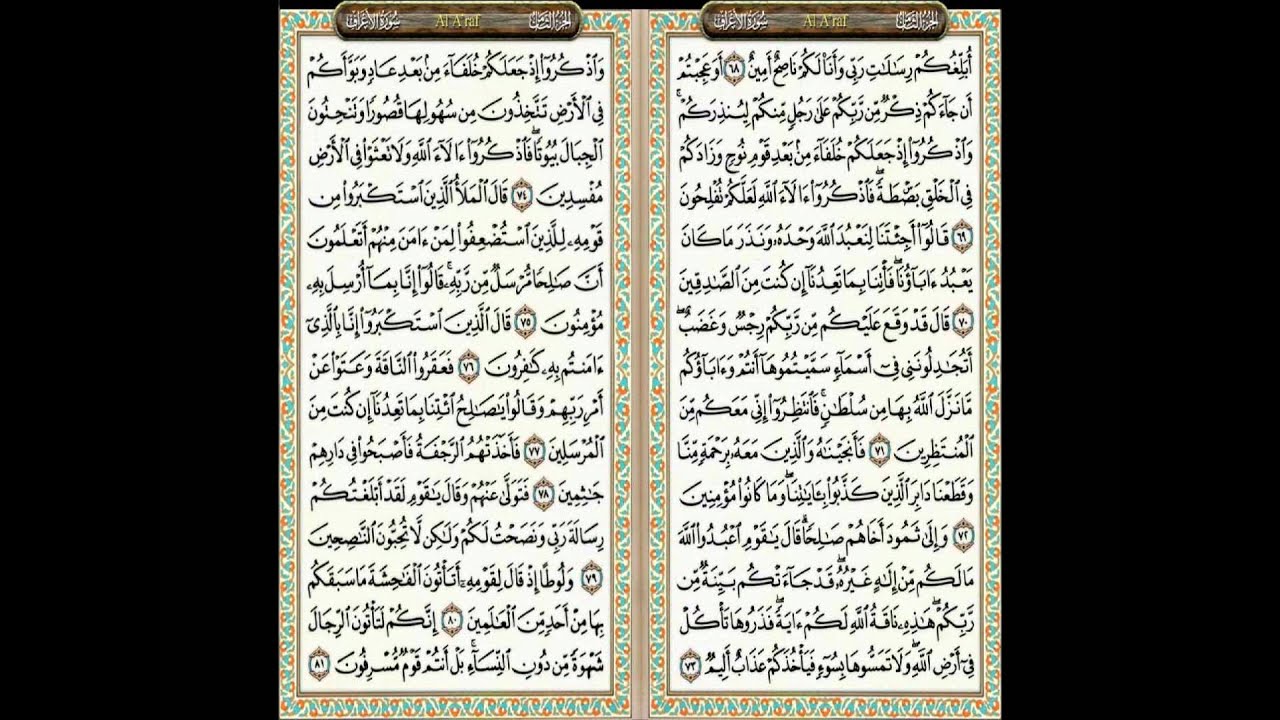 الجزء الثامن Al A'raf سورة الأعراف
أُبَلِّغُكُمْ رِسَالَاتِ رَبِّي وَأَنَا۠ لَكُمْ نَاصِحٌ أَمِينٌ ٦٨ أَوَعَجِبْتُمْ
أَن جَاءَكُمْ ذِكْرٌ مِّن رَّبِّكُمْ عَلَىٰ رَجُلٍ مِّنكُمْ لِيُنذِرَكُمْ ۚ
وَاذْكُرُوا إِذْ جَعَلَكُمْ خُلَفَاءَ مِن بَعْدِ قَوْمِ نُوحٍ وَزَادَكُمْ
فِي الْخَلْقِ بَصْۜطَةً ۖ فَاذْكُرُوا ءَالَاءَ اللَّهِ لَعَلَّكُمْ تُفْلِحُونَ
٦٩ قَالُوا أَجِئْتَنَا لِنَعْبُدَ اللَّهَ وَحْدَهُ وَنَذَرَ مَا كَانَ
يَعْبُدُ ءَابَاؤُنَا ۖ فَأْتِنَا بِمَا تَعِدُنَا إِن كُنتَ مِنَ الصَّادِقِينَ
٧٠ قَالَ قَدْ وَقَعَ عَلَيْكُم مِّن رَّبِّكُمْ رِجْسٌ وَغَضَبٌ ۖ
أَتُجَادِلُونَنِي فِي أَسْمَاءٍ سَمَّيْتُمُوهَا أَنتُمْ وَءَابَاؤُكُم
مَّا نَزَّلَ اللَّهُ بِهَا مِن سُلْطَانٍ ۚ فَانتَظِرُوا إِنِّي مَعَكُم مِّنَ
الْمُنتَظِرِينَ ٧١ فَأَنجَيْنَاهُ وَالَّذِينَ مَعَهُ بِرَحْمَةٍ مِّنَّا
وَقَطَعْنَا دَابِرَ الَّذِينَ كَذَّبُوا بِـَٔايَاتِنَا ۖ وَمَا كَانُوا مُؤْمِنِينَ
٧٢ وَإِلَىٰ ثَمُودَ أَخَاهُمْ صَالِحًا ۗ قَالَ يَاقَوْمِ اعْبُدُوا اللَّهَ
مَا لَكُم مِّنْ إِلَٰهٍ غَيْرُهُ ۖ قَدْ جَاءَتْكُم بَيِّنَةٌ مِّن
رَّبِّكُمْ ۖ هَٰذِهِ نَاقَةُ اللَّهِ لَكُمْ ءَايَةً ۖ فَذَرُوهَا تَأْكُلْ
فِي أَرْضِ اللَّهِ ۖ وَلَا تَمَسُّوهَا بِسُوءٍ فَيَأْخُذَكُمْ عَذَابٌ أَلِيمٌ ٧٣
الجزء الثامن Al A'raf سورة الأعراف
وَاذْكُرُوا إِذْ جَعَلَكُمْ خُلَفَاءَ مِن بَعْدِ عَادٍ وَبَوَّأَكُمْ
فِي الْأَرْضِ تَتَّخِذُونَ مِن سُهُولِهَا قُصُورًا وَتَنْحِتُونَ
الْجِبَالَ بُيُوتًا ۖ فَاذْكُرُوا ءَالَاءَ اللَّهِ وَلَا تَعْثَوْا فِي الْأَرْضِ
مُفْسِدِينَ ٧٤ قَالَ الْمَلَأُ الَّذِينَ اسْتَكْبَرُوا مِن
قَوْمِهِ لِلَّذِينَ اسْتُضْعِفُوا لِمَنْ ءَامَنَ مِنْهُمْ أَتَعْلَمُونَ
أَنَّ صَالِحًا مُّرْسَلٌ مِّن رَّبِّهِ ۚ قَالُوا إِنَّا بِمَا أُرْسِلَ بِهِ
مُؤْمِنُونَ ٧٥ قَالَ الَّذِينَ اسْتَكْبَرُوا إِنَّا بِالَّذِي
ءَامَنتُم بِهِ كَافِرُونَ ٧٦ فَعَقَرُوا النَّاقَةَ وَعَتَوْا عَنْ
أَمْرِ رَبِّهِمْ وَقَالُوا يَاصَالِحُ ائْتِنَا بِمَا تَعِدُنَا إِن كُنتَ مِنَ
الْمُرْسَلِينَ ٧٧ فَأَخَذَتْهُمُ الرَّجْفَةُ فَأَصْبَحُوا فِي دَارِهِمْ
جَاثِمِينَ ٧٨ فَتَوَلَّىٰ عَنْهُمْ وَقَالَ يَاقَوْمِ لَقَدْ أَبْلَغْتُكُمْ
رِسَالَةَ رَبِّي وَنَصَحْتُ لَكُمْ وَلَٰكِن لَّا تُحِبُّونَ النَّاصِحِينَ
٧٩ وَلُوطًا إِذْ قَالَ لِقَوْمِهِ أَتَأْتُونَ الْفَاحِشَةَ مَا سَبَقَكُم
بِهَا مِنْ أَحَدٍ مِّنَ الْعَالَمِينَ ٨٠ إِنَّكُمْ لَتَأْتُونَ الرِّجَالَ
شَهْوَةً مِّن دُونِ النِّسَاءِ ۚ بَلْ أَنتُمْ قَوْمٌ مُّسْرِفُونَ ٨١